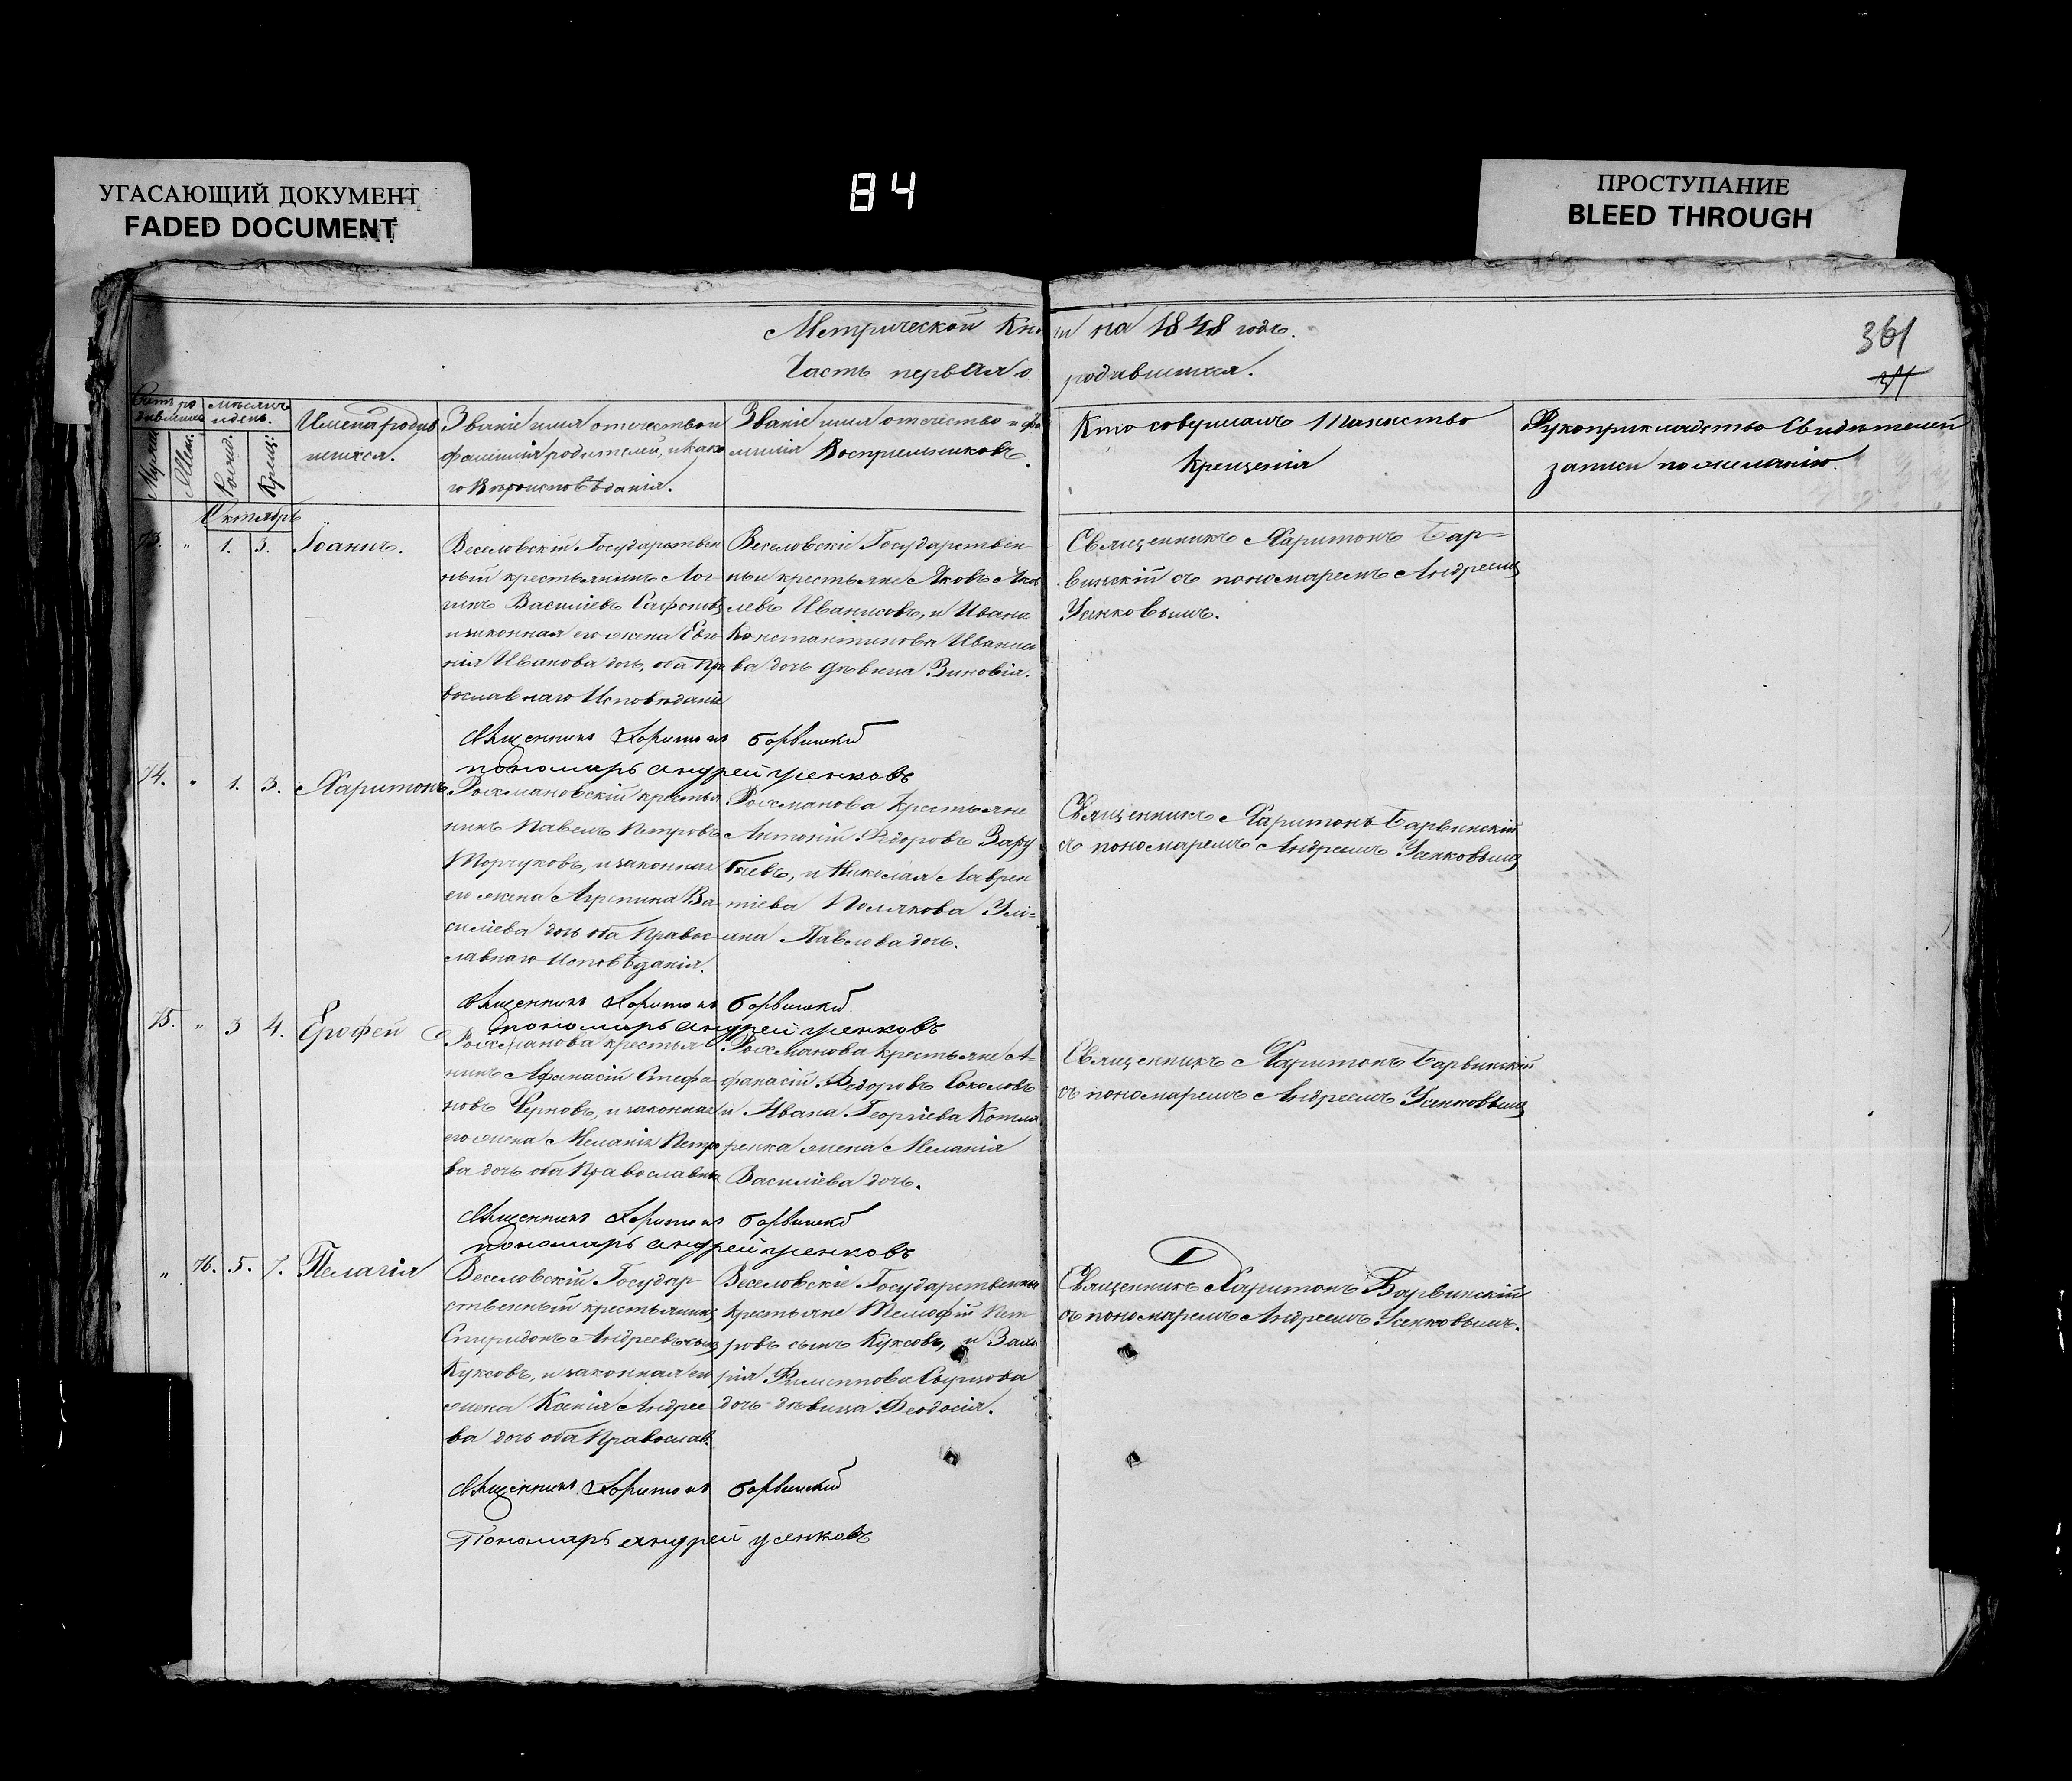 УГАСАЮЩИЙ ДОКУМЕНТ
FADED DOCUMENT
84
ПРОСТУПАНИЕ
BLEED THROUGH
Метрической Книги на 1848 годъ.
Часть первая о родившихся.
361
Счетъ родившихся
Мужеск.
Женск.
мѣсяцъ и день.
Рожд.
Крещ.
Имена родившихся.
Званіе имя отечество и
фамилія родителей, и како
го Вѣроисповѣданія.
Званіе имя отечество и фа
милія Воспріемниковъ.
Кто совершалъ Таинство
Крещенія
Рукоприкладство Свидѣтелей
записи по желанію.
Октябрь
73. " 1. 3. Іоаннъ.
Веселовскій Государствен
ный крестьянинъ Лог-
гинъ Василіевъ Сафоновъ
и законная его жена Евге
нія Иванова дочь, оба Пра
вославнаго Исповѣданія
Веселовскіе Государствен-
ные крестьяне Яковъ Яков
левъ Иванисовъ, и Ивана
Константинова Иванисо
ва дочь дѣвица Зиновія.
Священникъ Харитонъ Бар-
винскій съ пономаремъ Андреемъ
Усенковымъ.
Священникъ Харитонъ Борвинскій
пономарь андрей усенковъ
74. " 1. 3. Харитонъ
Рохмановскій крестья
нинъ Павелъ Петровъ
Торчуковъ, и законная
его жена Агрепина Ва-
силіева дочь оба Правос-
лавнаго Исповѣданія.
Рохманова Крестьяне
Антоній Федоровъ Зару
біевъ, и Николая Лаврен
тіева Полякова Улі-
яна Павлова дочь.
Священникъ Харитонъ Барвинскій
съ пономаремъ Андреемъ Усенковымъ
Священникъ Харитонъ Борвинскій
пономарь андрей усенковъ
75. " 3 4. Ерофей
Рохманова крестья-
нинъ Афанасій Стефа
новъ Черновъ, и законная
его жена Меланія Петро
ва дочь оба Православные
Рохманова крестьяне А-
фанасій Федоровъ Соколовъ
и Ивана Георгіева Котля
ренка жена Меланія
Василіева дочь.
Священникъ Харитонъ Барвинскій
съ пономаремъ Андреемъ Усенковымъ
Священникъ Харитонъ Борвинскій
пономарь андрей усенковъ
" 76. 5. 7. Пелагія
Веселовскій Государ-
ственный крестьянинъ
Спиридонъ Андреевъ сынъ
Куксовъ, и законная его
жена Ксенія Андрее
ва дочь оба Православ.
Веселовскіе Государственные
крестьяне Тимофій Пет-
ровъ сынъ Куксовъ, и Заха
рія Филиппова Сырцова
дочь дѣвица Феодосія.
Священникъ Харитонъ Барвинскій
съ пономаремъ Андреемъ Усенковымъ.
Священникъ Харитонъ Борвинскій
Пономарь андрей усенковъ